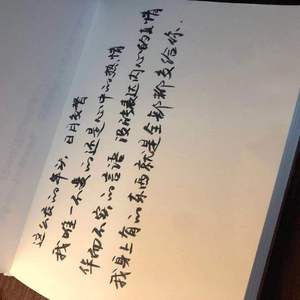 这么的年头 日月交替
我唯一不变的还是心中的热情
华而不实的言语 没法表达内心的真情
我身上有的东西就是全部都交给你.